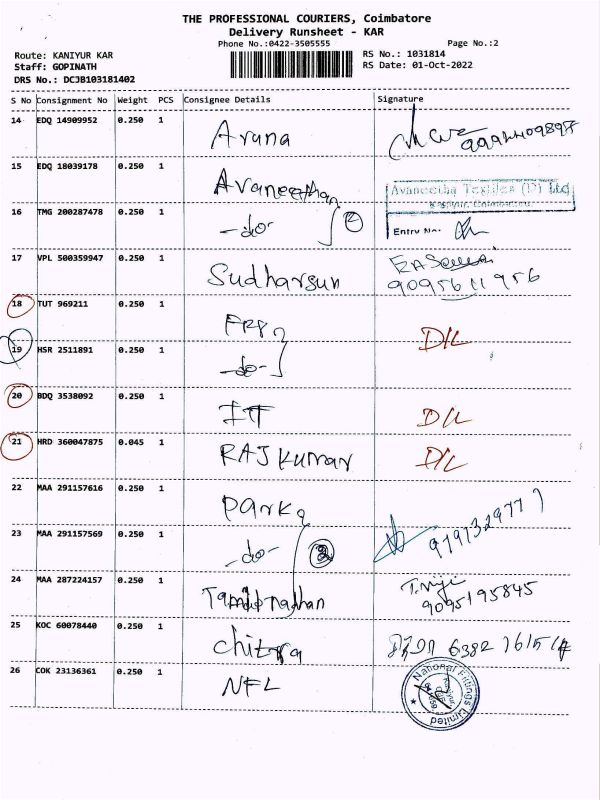 THE PROFESSIONAL COURIERS, Coimbatore
Delivery Runsheet - KAR
Phone No.:0422-3505555
Page No.:2
Route: KANIYUR KAR
RS No.: 1031814
Staff: GOPINATH
RS Date: 01-Oct-2022
DRS No.: DCJB103181402
S No Consignment No Weight PCS Consignee Details Signature
14 EDQ 14909952 0.250 1 Aruna
15 EDQ 18039178 0.250 1 Avaneethan Avaneetha Textiles (P) Ltd
Kaniyur, Coimbatore.
16 TMG 200287478 0.250 1 -do- 2 Entry No.
17 VPL 500359947 0.250 1 Sudharsun
9095611956
18 TUT 969211 0.250 1 D/L
19 HSR 2511891 0.250 1 -do-
20 BDQ 3538092 0.250 1 ITT D/L
21 HRD 360047875 0.045 1 RAJ Kumar D/L
22 MAA 291157616 0.250 1 Park
23 MAA 291157569 0.250 1 -do-
24 MAA 287224157 0.250 1 T.Viji
9095195845
25 KOC 60078440 0.250 1 chitra
26 COK 23136361 0.250 1 NFL National Fittings Limited